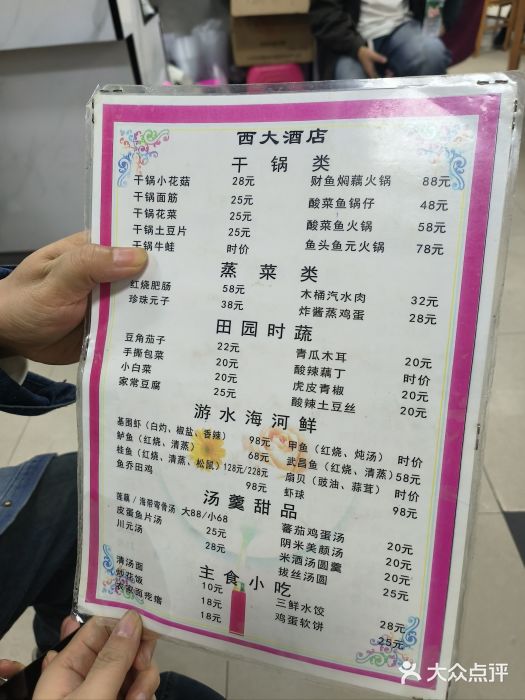 西大酒店
干锅类
干锅小花菇 28元
干锅面筋 25元
干锅花菜 25元
干锅土豆片 25元
干锅牛蛙 时价
财鱼焖藕火锅 88元
酸菜鱼锅仔 48元
酸菜鱼火锅 58元
鱼头鱼元火锅 78元
蒸菜类
红烧肥肠 58元
珍珠元子 38元
木桶汽水肉 32元
炸酱蒸鸡蛋 28元
田园时蔬
豆角茄子 22元
手撕包菜 20元
小白菜 20元
家常豆腐 20元
青瓜木耳 20元
酸辣藕丁 时价
虎皮青椒 20元
酸辣土豆丝 20元
游水海河鲜
基围虾（白灼、椒盐、香辣） 98元
鲈鱼（红烧、清蒸） 68元
桂鱼（红烧、清蒸、松鼠） 128元/228元
鱼乔田鸡 98元
甲鱼（红烧、炖汤） 时价
武昌鱼（红烧、清蒸） 58元
扇贝（豉油、蒜茸） 时价
虾球 98元
汤羹甜品
莲藕/海带弯骨汤 大88/小68
皮蛋鱼片汤 25元
川元汤 28元
蕃茄鸡蛋汤 20元
阴米美颜汤 20元
米酒汤圆羹 20元
拔丝汤圆 25元
主食小吃
清汤面 10元
炒花饭 18元
农家面疙瘩 18元
三鲜水饺 28元
鸡蛋软饼 25元
大众点评